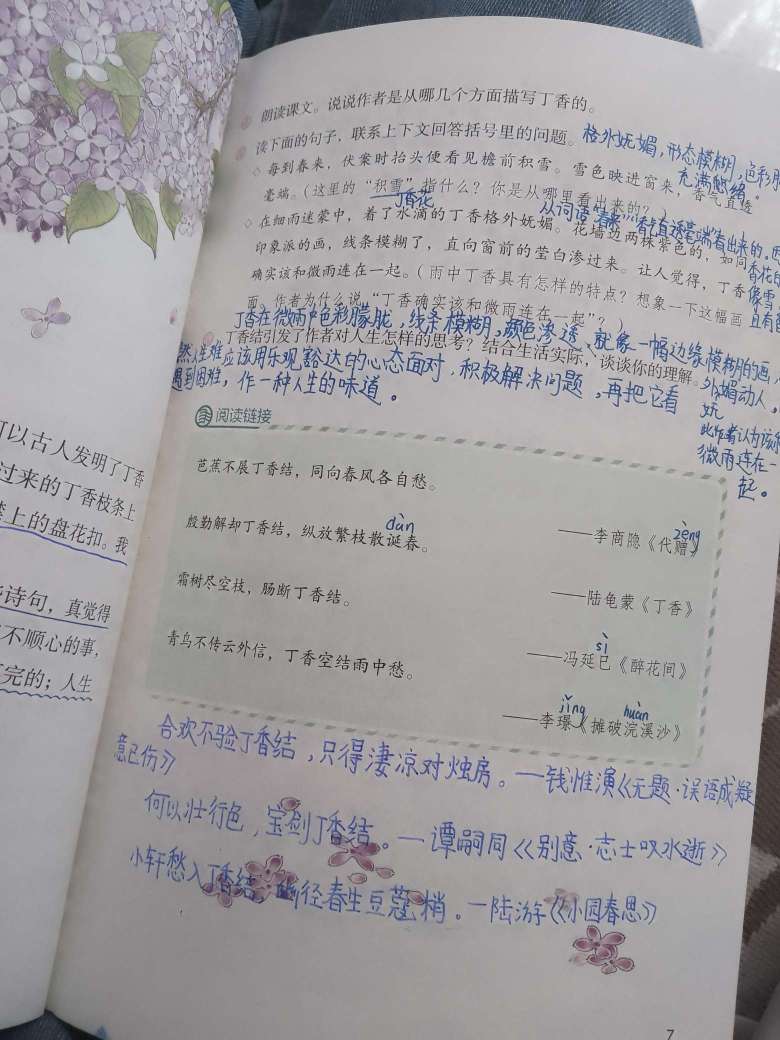 可以古人发明了丁香
过来的丁香枝条上
上的盘花扣。我
诗句，真觉得
不顺心的事，
完的；人生
朗读课文。说说作者是从哪几个方面描写丁香的。
读下面的句子，联系上下文回答括号里的问题。
格外妩媚，形态模糊，色彩
充满悠绪。
◇ 每到春来，伏案时抬头便看见檐前积雪。雪色映进窗来，香气直透
毫端。（这里的“积雪”指什么？你是从哪里看出来的？）
丁香花
◇ 在细雨迷蒙中，着了水滴的丁香格外妩媚。花墙边两株紫色的，如同
印象派的画，线条模糊了，直向窗前的莹白渗过来。让人觉得，丁香
确实该和微雨连在一起。（雨中丁香具有怎样的特点？想象一下这幅画
面。作者为什么说“丁香确实该和微雨连在一起”？）
丁香在微雨中色彩朦胧，线条模糊，颜色渗透、就象一幅边缘模糊的画，
外媚动人。
妩
此作者认为该和
微雨连在一
起。
丁香结引发了作者对人生怎样的思考？结合生活实际，谈谈你的理解。
然人生难应该用乐观豁达的心态面对，积极解决问题，再把它看
遇到困难，作一种人生的味道。
阅读链接
芭蕉不展丁香结，同向春风各自愁。
zèng
——李商隐《代赠》
dàn
殷勤解却丁香结，纵放繁枝散诞春。
——陆龟蒙《丁香》
霜树尽空枝，肠断丁香结。
sì
——冯延巳《醉花间》
青鸟不传云外信，丁香空结雨中愁。
jǐng huàn
——李璟《摊破浣溪沙》
合欢不验丁香结，只得凄凉对烛房。—钱惟演《无题·误语成疑
意已伤》
何以壮行色，宝剑丁香结。—谭嗣同《别意·志士叹水逝》
小轩愁入丁香结，幽径春生豆蔻梢。—陆游《小园春思》
7